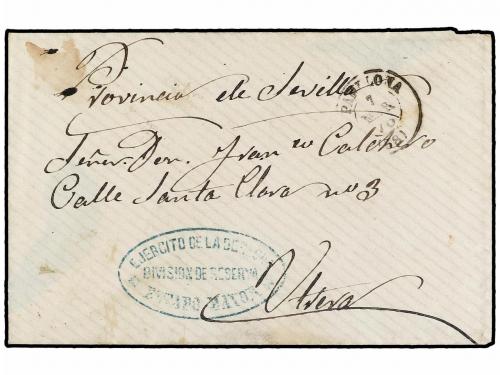 Provincia de Sevilla
Señor Don Franco Calchero
Calle Santa Clara no 3
Utrera
PAMPLONA
7
EJERCITO DE LA DERECHA
DIVISION DE RESERVA
ESTADO MAYOR